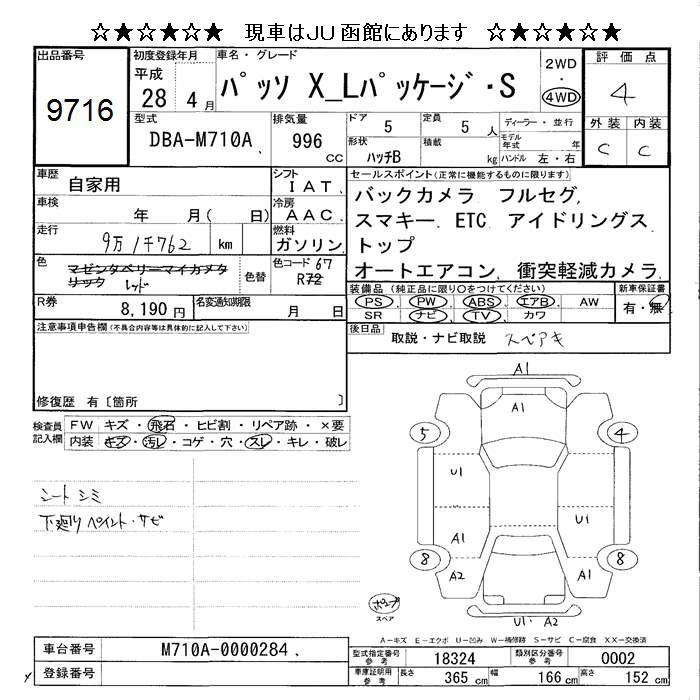 ☆★☆★☆★ 現車はJU函館にあります ☆★☆★☆★
出品番号 初度登録年月 車名・グレード 2WD 評価点
9716 平成 28 4月 パッソ X_Lパッケージ・S ・ 4WD 4
型式 排気量 ドア 定員 ディーラー・並行 外装 内装
DBA-M710A 996 CC 5 5人 モデル年式 年 C C
形状 ハッチB 積載 kg ハンドル 左・右
車歴 自家用 シフト IAT セールスポイント(正常に機能するものに限ります)
車検 年 月( 日) 冷房 AAC バックカメラ フルセグ
走行 9万1千762 km 燃料 ガソリン スマキー ETC アイドリングス
トップ
色 マゼンタベリーマイカメタリック レッド 色替 色コード 67 R72 オートエアコン 衝突軽減カメラ
R券 8,190円 名変通知期限 月 日 装備品(純正品に限り○をつけてください) 新車保証書
PS PW ABS エアB AW 有・無
SR ナビ TV カワ
注意事項申告欄(不具合内容等は具体的に記入して下さい) 後日品 取説・ナビ取説 スペアキ
修復歴 有〔箇所 〕
検査員記入欄 FW キズ・飛石・ヒビ割・リペア跡・×要
内装 キズ・汚レ・コゲ・穴・スレ・キレ・破レ
シートシミ
下廻りペイント・サビ
A1
A1
5 4
U1
A1 U1
8 8
A2 A1
スペア
U1・A2
A-キズ E-エクボ U-凹み W-補修跡 S-サビ C-腐食 XX-交換済
車台番号 M710A-0000284 型式指定番号 参考 18324 類別区分番号 参考 0002
登録番号 車庫証明用 参考 長さ 365cm 幅 166cm 高さ 152cm